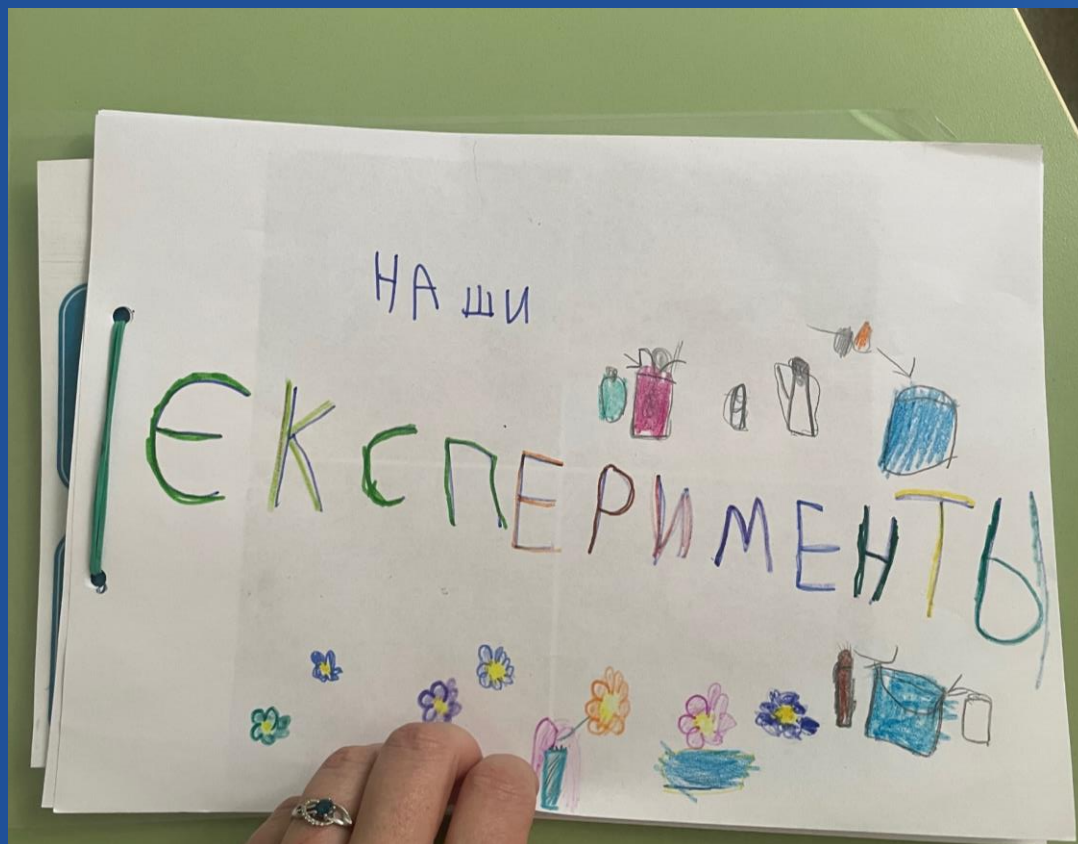 НАШИ
ЕКСПЕРИМЕНТЫ